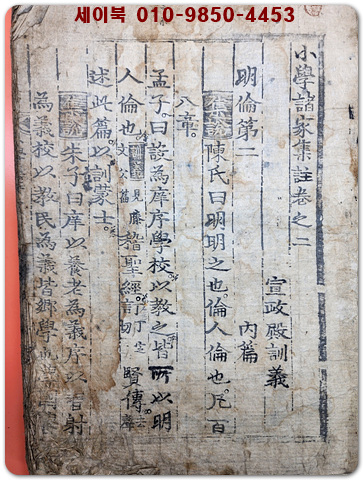 세이북 010-9850-4453
小學諸家集註卷之二
宣政殿訓義
明倫第二 內篇
集說 陳氏曰明明之也倫人倫也凡百
八章。
孟子。曰設為庠序學校以教之。皆所以明
人倫也。稽聖經訂賢傳。
述此篇。以訓蒙士。
集說 朱子曰庠以養老為義序以習射
為義校以教民為義皆鄉學也